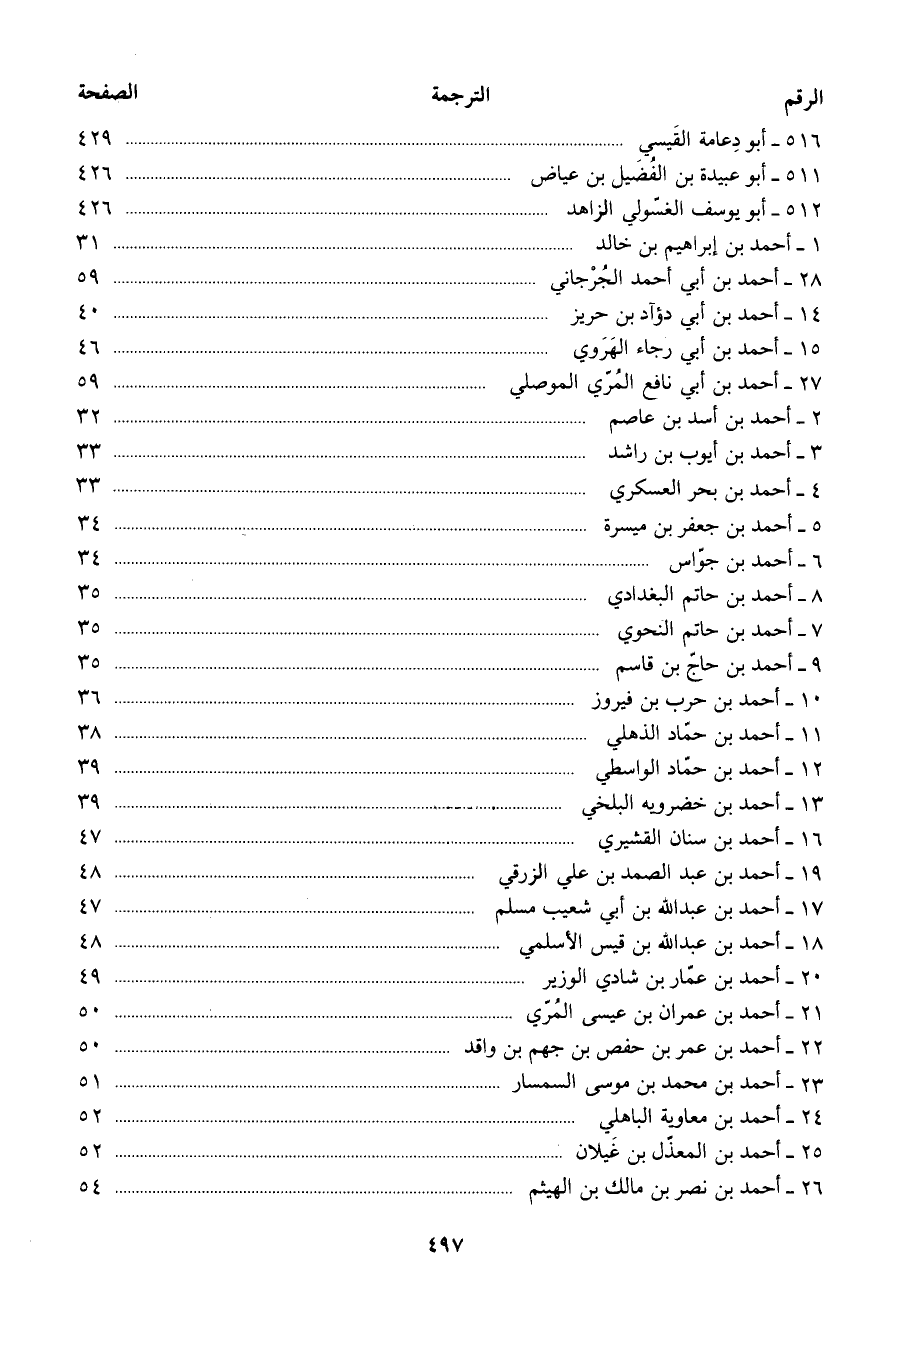 الرقم الترجمة الصفحة
٥١٦ ـ أبو دِعامة القَيسي ٤٢٩
٥١١ ـ أبو عبيدة بن الفُضَيل بن عياض ٤٢٦
٥١٢ ـ أبو يوسف الغسّولي الزاهد ٤٢٦
١ ـ أحمد بن إبراهيم بن خالد ٣١
٢٨ ـ أحمد بن أبي أحمد الجُرْجاني ٥٩
١٤ ـ أحمد بن أبي دؤآد بن حريز ٤٠
١٥ ـ أحمد بن أبي رجاء الهَرَوي ٤٦
٢٧ ـ أحمد بن أبي نافع المُرّي الموصلي ٥٩
٢ ـ أحمد بن أسد بن عاصم ٣٢
٣ ـ أحمد بن أيوب بن راشد ٣٣
٤ ـ أحمد بن بحر العسكري ٣٣
٥ ـ أحمد بن جعفر بن ميسرة ٣٤
٦ ـ أحمد بن جوّاس ٣٤
٨ ـ أحمد بن حاتم البغدادي ٣٥
٧ ـ أحمد بن حاتم النحوي ٣٥
٩ ـ أحمد بن حاجّ بن قاسم ٣٥
١٠ ـ أحمد بن حرب بن فيروز ٣٦
١١ ـ أحمد بن حمّاد الذهلي ٣٨
١٢ ـ أحمد بن حمّاد الواسطي ٣٩
١٣ ـ أحمد بن خضرويه البلخي ٣٩
١٦ ـ أحمد بن سنان القشيري ٤٧
١٩ ـ أحمد بن عبد الصمد بن علي الزرقي ٤٨
١٧ ـ أحمد بن عبدالله بن أبي شعيب مسلم ٤٧
١٨ ـ أحمد بن عبدالله بن قيس الأسلمي ٤٨
٢٠ ـ أحمد بن عمّار بن شادي الوزير ٤٩
٢١ ـ أحمد بن عمران بن عيسى المُرّي ٥٠
٢٢ ـ أحمد بن عمر بن حفص بن جهم بن واقد ٥٠
٢٣ ـ أحمد بن محمد بن موسى السمسار ٥١
٢٤ ـ أحمد بن معاوية الباهلي ٥٢
٢٥ ـ أحمد بن المعذّل بن غَيلان ٥٢
٢٦ ـ أحمد بن نصر بن مالك بن الهيثم ٥٤
٤٩٧